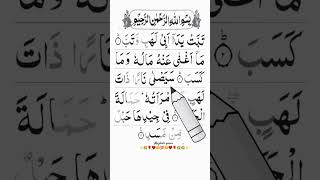 بِسْمِ اللهِ الرَّحْمٰنِ الرَّحِيْمِ
تَبَّتْ يَدَآ اَبِيْ لَهَبٍ وَّتَبَّ ۝١
مَآ اَغْنٰى عَنْهُ مَالُهٗ وَمَا
كَسَبَ ۝٢ سَيَصْلٰى نَارًا ذَاتَ
لَهَبٍ وَّامْرَاَتُهٗ حَمَّالَةَ
فِيْ جِيْدِهَا حَبْلٌ
مِّنْ مَّسَدٍ